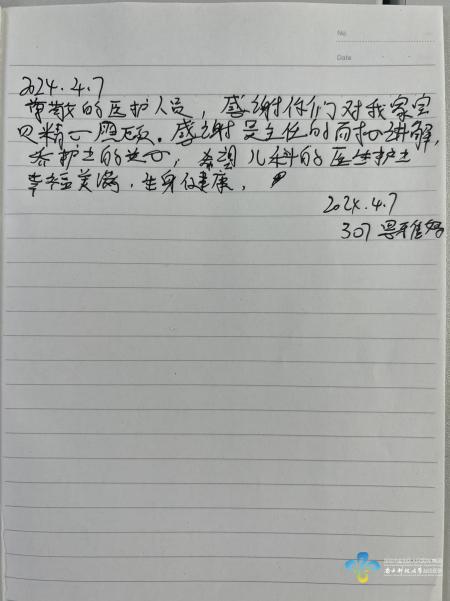 No
Date
2024.4.7
尊敬的医护人员，感谢你们对我家宝
贝精心照顾。感谢吴主任的耐心讲解，
各护士的关心，希望儿科的医生护士
幸福美满，生身健康，
2024.4.7
307 思雅妈
南方科技大学